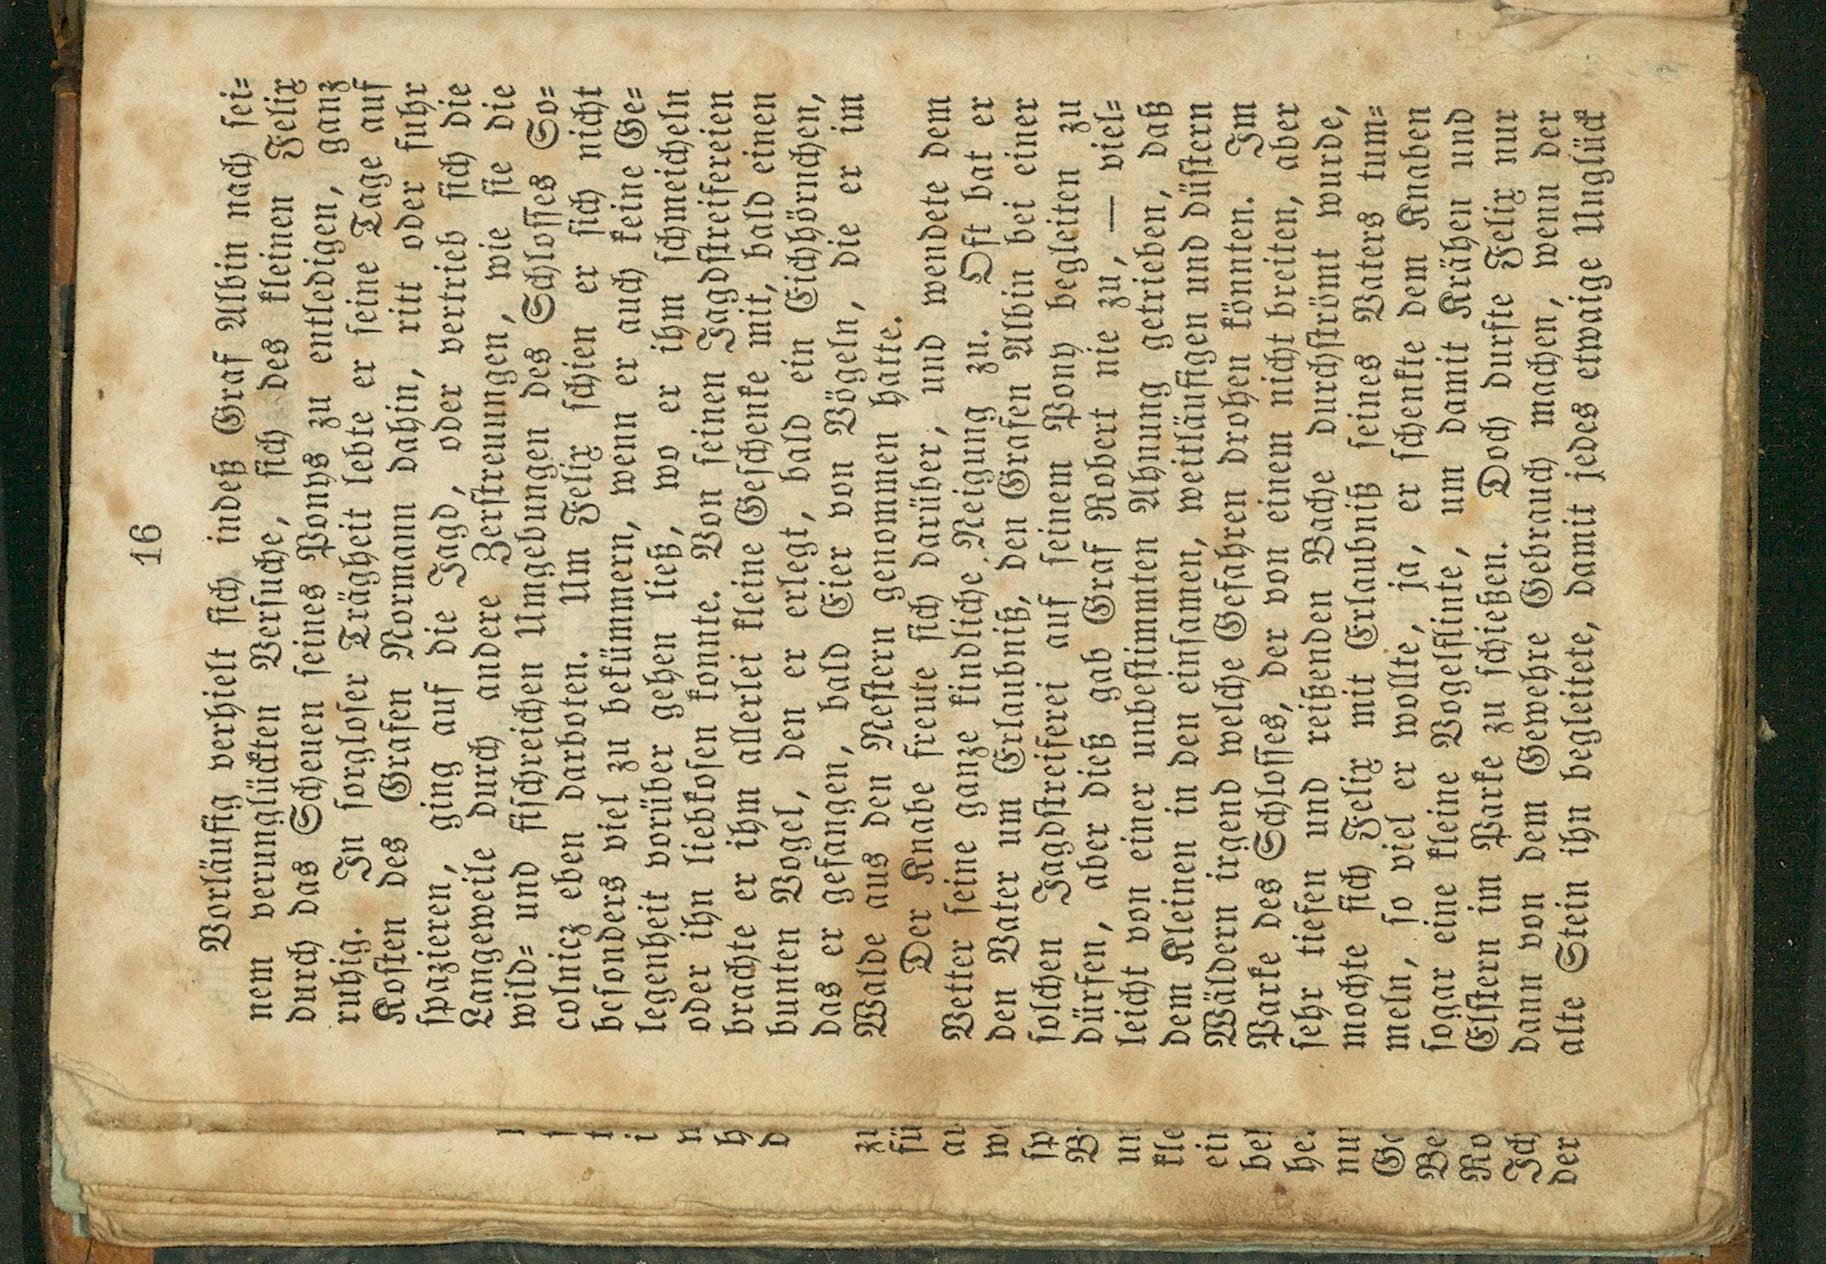 16
Vorläufig verhielt sich indeß Graf Albin nach sei-
nem verunglückten Versuche, sich des kleinen Felix
durch das Scheuen seines Ponys zu entledigen, ganz
ruhig. In sorgloser Trägheit lebte er seine Tage auf
Kosten des Grafen Normann dahin, ritt oder fuhr
spazieren, ging auf die Jagd, oder vertrieb sich die
Langeweile durch andere Zerstreuungen, wie sie die
wild- und fischreichen Umgebungen des Schlosses So-
colnicz eben darboten. Um Felix schien er sich nicht
besonders viel zu bekümmern, wenn er auch keine Ge-
legenheit vorüber gehen ließ, wo er ihm schmeicheln
oder ihn liebkosen konnte. Von seinen Jagdstreifereien
brachte er ihm allerlei kleine Geschenke mit, bald einen
bunten Vogel, den er erlegt, bald ein Eichhörnchen,
das er gefangen, bald Eier von Vögeln, die er im
Walde aus den Nestern genommen hatte.
Der Knabe freute sich darüber, und wendete dem
Vetter seine ganze kindliche Neigung zu. Oft bat er
den Vater um Erlaubniß, den Grafen Albin bei einer
solchen Jagdstreiferei auf seinem Pony begleiten zu
dürfen, aber dieß gab Graf Robert nie zu, — viel-
leicht von einer unbestimmten Ahnung getrieben, daß
dem Kleinen in den einsamen, weitläufigen und düstern
Wäldern irgend welche Gefahren drohen könnten. Im
Parke des Schlosses, der von einem nicht breiten, aber
sehr tiefen und reißenden Bache durchströmt wurde,
mochte sich Felix mit Erlaubniß seines Vaters tum-
meln, so viel er wollte, ja, er schenkte dem Knaben
sogar eine kleine Vogelflinte, um damit Krähen und
Elstern im Parke zu schießen. Doch durfte Felix nur
dann von dem Gewehre Gebrauch machen, wenn der
alte Stein ihn begleitete, damit jedes etwaige Unglück